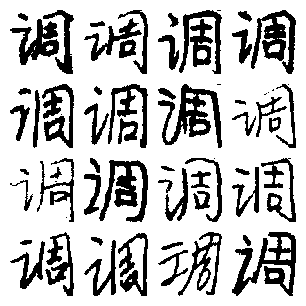 调调调调
调调调调
调调调调
调调调调